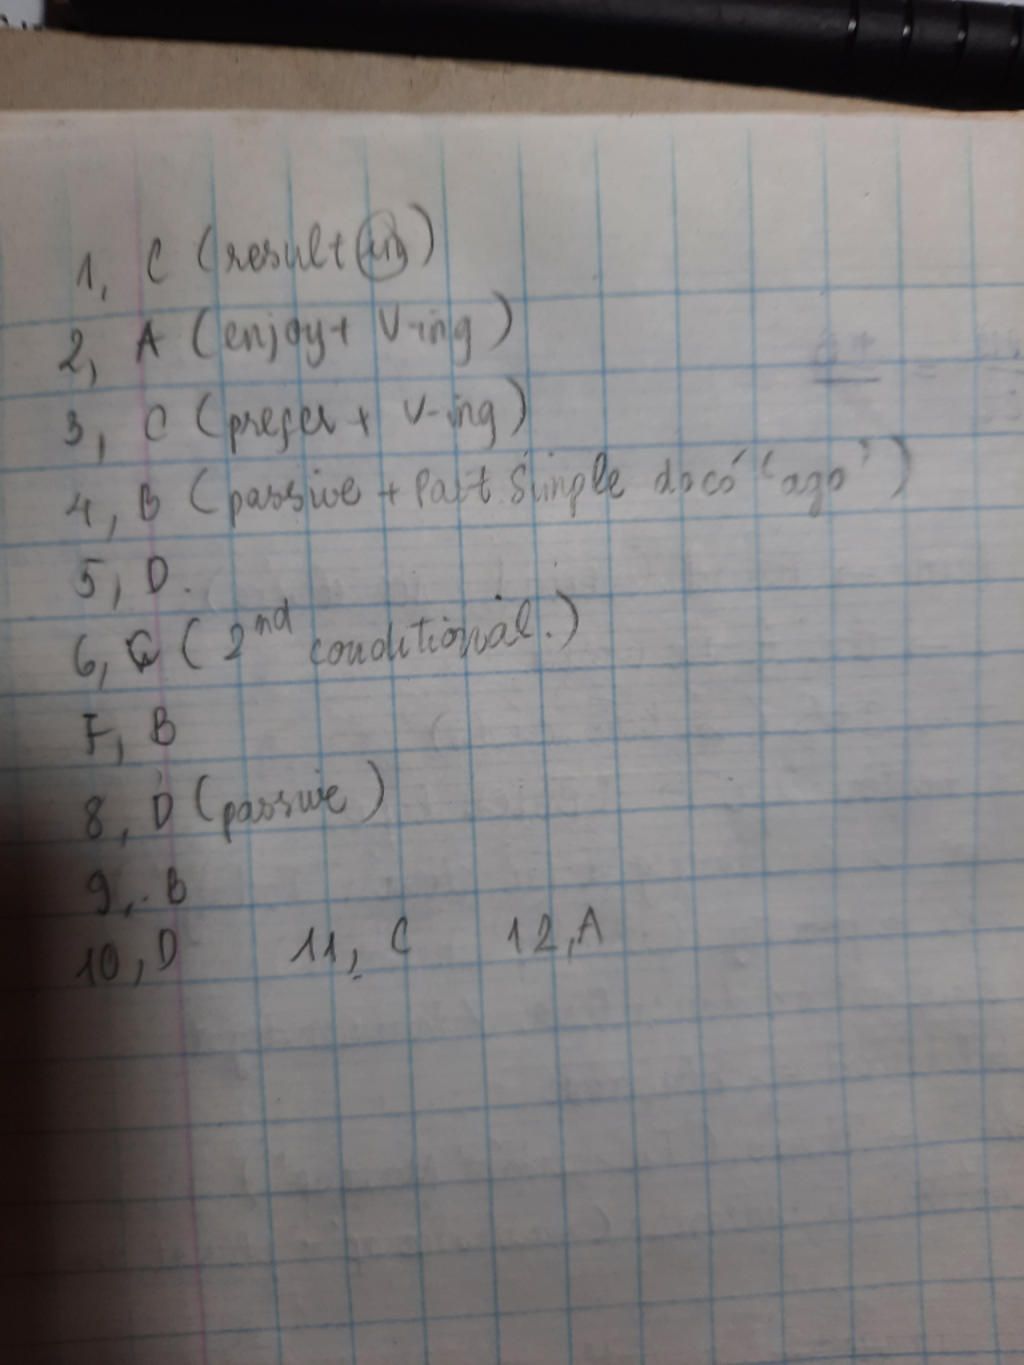 1, C (result in)
2, A (enjoy + V-ing)
3, C (prefer + V-ing)
4, B (passive + Past Simple do có 'ago')
5, D.
6, C (2nd conditional.)
7, B
8, D (passive)
9, B
10, D 11, C 12, A